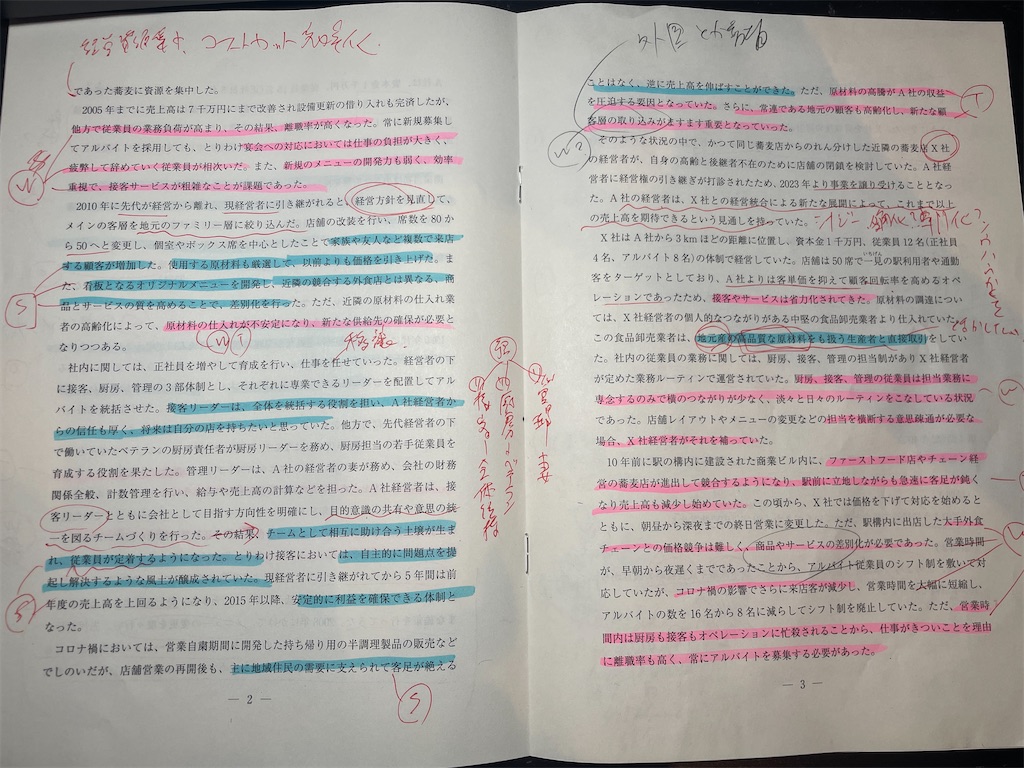 であった蕎麦に資源を集中した。
2005年までに売上高は7千万円にまで改善され設備更新の借り入れも完済したが、
他方で従業員の業務負荷が高まり、その結果、離職率が高くなった。常に新規募集し
てアルバイトを採用しても、とりわけ宴会への対応においては仕事の負担が大きく、
疲弊して辞めていく従業員が相次いだ。また、新規のメニューの開発力も弱く、効率
重視で、接客サービスが粗雑なことが課題であった。
2010年に先代が経営から離れ、現経営者に引き継がれると、経営方針を見直して、
メインの客層を地元のファミリー層に絞り込んだ。店舗の改装を行い、席数を80か
ら50へと変更し、個室やボックス席を中心としたことで家族や友人など複数で来店
する顧客が増加した。使用する原材料も厳選して、以前よりも価格を引き上げた。ま
た、看板となるオリジナルメニューを開発し、近隣の競合する外食店とは異なる、商
品とサービスの質を高めることで、差別化を行った。ただ、近隣の原材料の仕入れ業
者の高齢化によって、原材料の仕入れが不安定になり、新たな供給先の確保が必要と
なりつつある。
社内に関しては、正社員を増やして育成を行い、仕事を任せていった。経営者の下
に接客、厨房、管理の3部体制とし、それぞれに専業できるリーダーを配置してアル
バイトを統括させた。接客リーダーは、全体を統括する役割を担い、A社経営者か
らの信任も厚く、将来は自分の店を持ちたいと思っていた。他方で、先代経営者の下
で働いていたベテランの厨房責任者が厨房リーダーを務め、厨房担当の若手従業員を
育成する役割を果たした。管理リーダーは、A社の経営者の妻が務め、会社の財務
関係全般、計数管理を行い、給与や売上高の計算などを担った。A社経営者は、接
客リーダーとともに会社として目指す方向性を明確にし、目的意識の共有や意思の統
一を図るチームづくりを行った。その結果、チームとして相互に助け合う土壌が生ま
れ、従業員が定着するようになった。とりわけ接客においては、自主的に問題点を提
起し解決するような風土が醸成されていた。現経営者に引き継がれてから5年間は前
年度の売上高を上回るようになり、2015年以降、安定的に利益を確保できる体制と
なった。
コロナ禍においては、営業自粛期間に開発した持ち帰り用の半調理製品の販売など
でしのいだが、店舗営業の再開後も、主に地域住民の需要に支えられて客足が絶える
— 2 —
S
ことはなく、逆に売上高を伸ばすことができた。ただ、原材料の高騰がA社の収益
を圧迫する要因となっていた。さらに、常連である地元の顧客も高齢化し、新たな顧
客層の取り込みがますます重要となっていった。
そのような状況の中で、かつて同じ蕎麦店からのれん分けした近隣の蕎麦店X社
の経営者が、自身の高齢と後継者不在のために店舗の閉鎖を検討していた。A社経
営者に経営権の引き継ぎが打診されたため、2023年より事業を譲り受けることとなっ
た。A社の経営者は、X社との経営統合による新たな展開によって、これまで以上
の売上高を期待できるという見通しを持っていた。
X社はA社から3kmほどの距離に位置し、資本金1千万円、従業員12名(正社員
4名、アルバイト8名)の体制で経営していた。店舗は50席で一見の駅利用者や通勤
客をターゲットとしており、A社よりは客単価を抑えて顧客回転率を高めるオペ
レーションであったため、接客やサービスは省力化されてきた。原材料の調達につい
ては、X社経営者の個人的なつながりがある中堅の食品卸売業者より仕入れていた。
この食品卸売業者は、地元産の高品質な原材料をも扱う生産者と直接取引をしてい
た。社内の従業員の業務に関しては、厨房、接客、管理の担当制がありX社経営者
が定めた業務ルーティンで運営されていた。厨房、接客、管理の従業員は担当業務に
専念するのみで横のつながりが少なく、淡々と日々のルーティンをこなしている状況
であった。店舗レイアウトやメニューの変更などの担当を横断する意思疎通が必要な
場合、X社経営者がそれを補っていた。
10年前に駅の構内に建設された商業ビル内に、ファーストフード店やチェーン経
営の蕎麦店が進出して競合するようになり、駅前に立地しながらも急速に客足が鈍く
なり売上高も減少し始めていた。この頃から、X社では価格を下げて対応を始めると
ともに、朝昼から深夜までの終日営業に変更した。ただ、駅構内に出店した大手外食
チェーンとの価格競争は難しく、商品やサービスの差別化が必要であった。営業時間
が、早朝から夜遅くまでであったことから、アルバイト従業員のシフト制を敷いて対
応していたが、コロナ禍の影響でさらに来店客が減少し、営業時間を大幅に短縮し、
アルバイトの数を16名から8名に減らしてシフト制を廃止していた。ただ、営業時
間内は厨房も接客もオペレーションに忙殺されることから、仕事がきついことを理由
に離職率も高く、常にアルバイトを募集する必要があった。
— 3 —